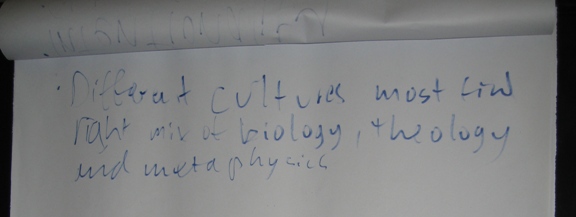 · Different cultures most find
right mix of biology, theology
and metaphysics